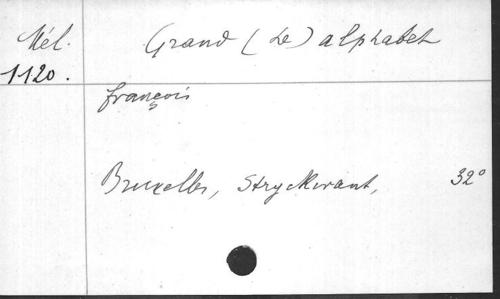 Mél. Grand (Le) alphabet
1120.
françois
Bruxelles, Stryckwant, 32°